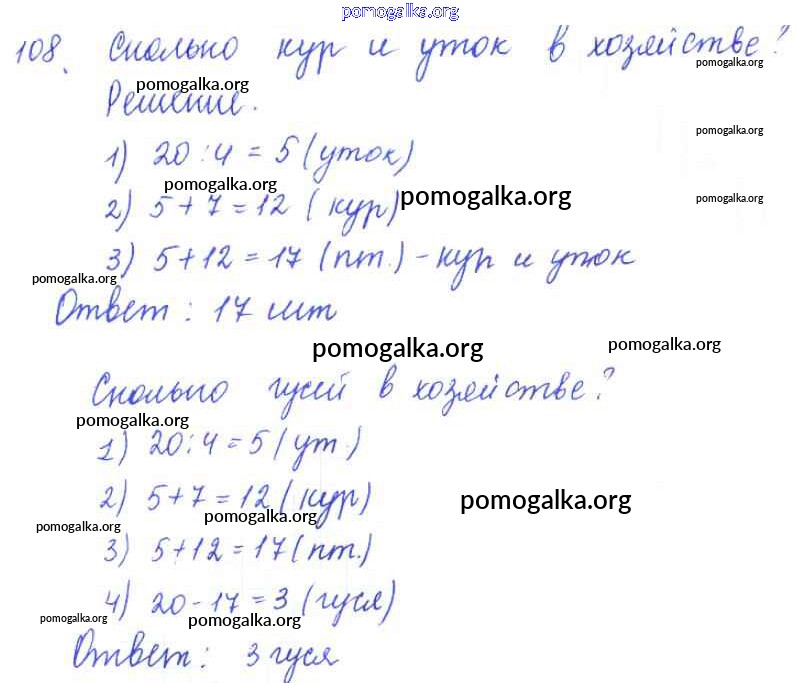 pomogalka.org
108. Сколько кур и уток в хозяйстве?
pomogalka.org
pomogalka.org
Решение.
pomogalka.org
1) 20 : 4 = 5 (уток)
pomogalka.org
2) 5 + 7 = 12 (кур)
pomogalka.org
pomogalka.org
3) 5 + 12 = 17 (пт.) - кур и уток
pomogalka.org
Ответ : 17 шт
pomogalka.org
pomogalka.org
Сколько гусей в хозяйстве?
pomogalka.org
1) 20 : 4 = 5 (ут.)
2) 5 + 7 = 12 (кур)
pomogalka.org
pomogalka.org
pomogalka.org
3) 5 + 12 = 17 (пт.)
4) 20 - 17 = 3 (гуся)
pomogalka.org
pomogalka.org
Ответ : 3 гуся